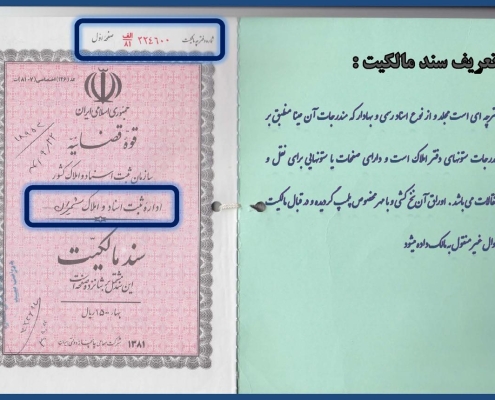 شماره دفترچه مالکیت ۳۲۴۶۰۰ الف/۸۱ صفحه اول
جمهوری اسلامی ایران
قوه قضائیه
سازمان ثبت اسناد و املاک کشور
اداره ثبت اسناد و املاک شمیران
سند مالکیت
این سند مشتمل بر شانزده صفحه است
بهاء ۱۵۰ ریال
۱۳۸۱
تعریف سند مالکیت :
رچه ای است مجلد و از نوع اسناد رسمی و بهادار که مندرجات آن عینا منطبق بر
درجات ستونهای دفتر املاک است و دارای صفحات یا ستونهایی برای نقل و
قالات می باشد . اوراق آن نخ کشی و با مهر مخصوص پلمپ گردیده و در قبال مالکیت
وال غیر منقول به مالک داده میشود